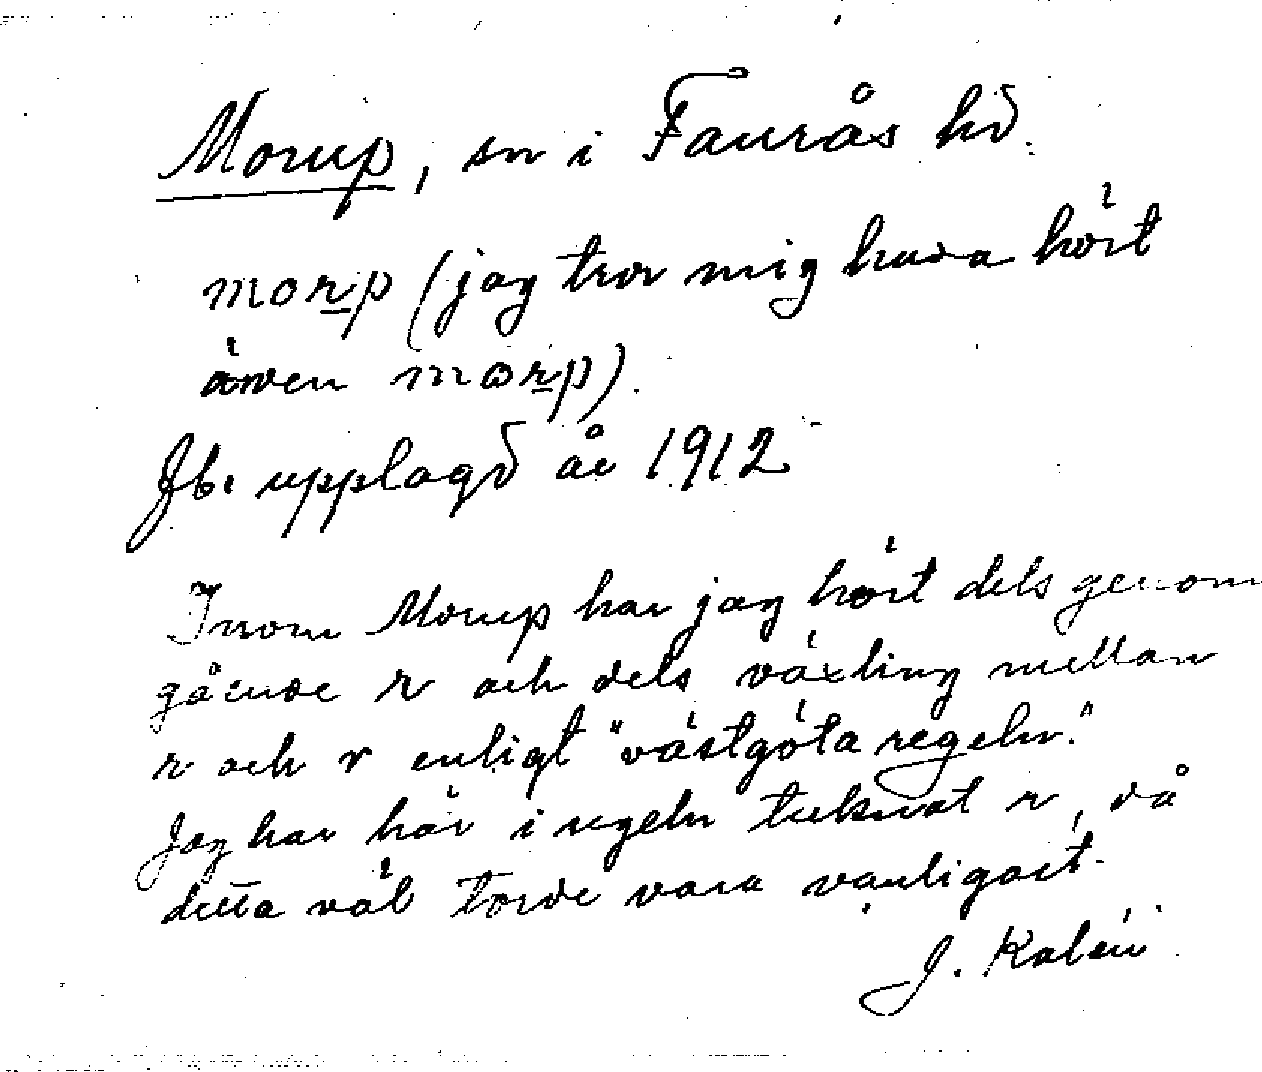 Morup, sn i Faurås hd.
morp (jag tror mig hava hört
även mɷrp).
Jb. upplagd år 1912
Inom Morup har jag hört dels genom
gående r och dels växling mellan
r och r enligt "västgötaregeln".
Jag har här i regeln tecknat r, då
detta väl torde vara vanligast.
J. Kalén